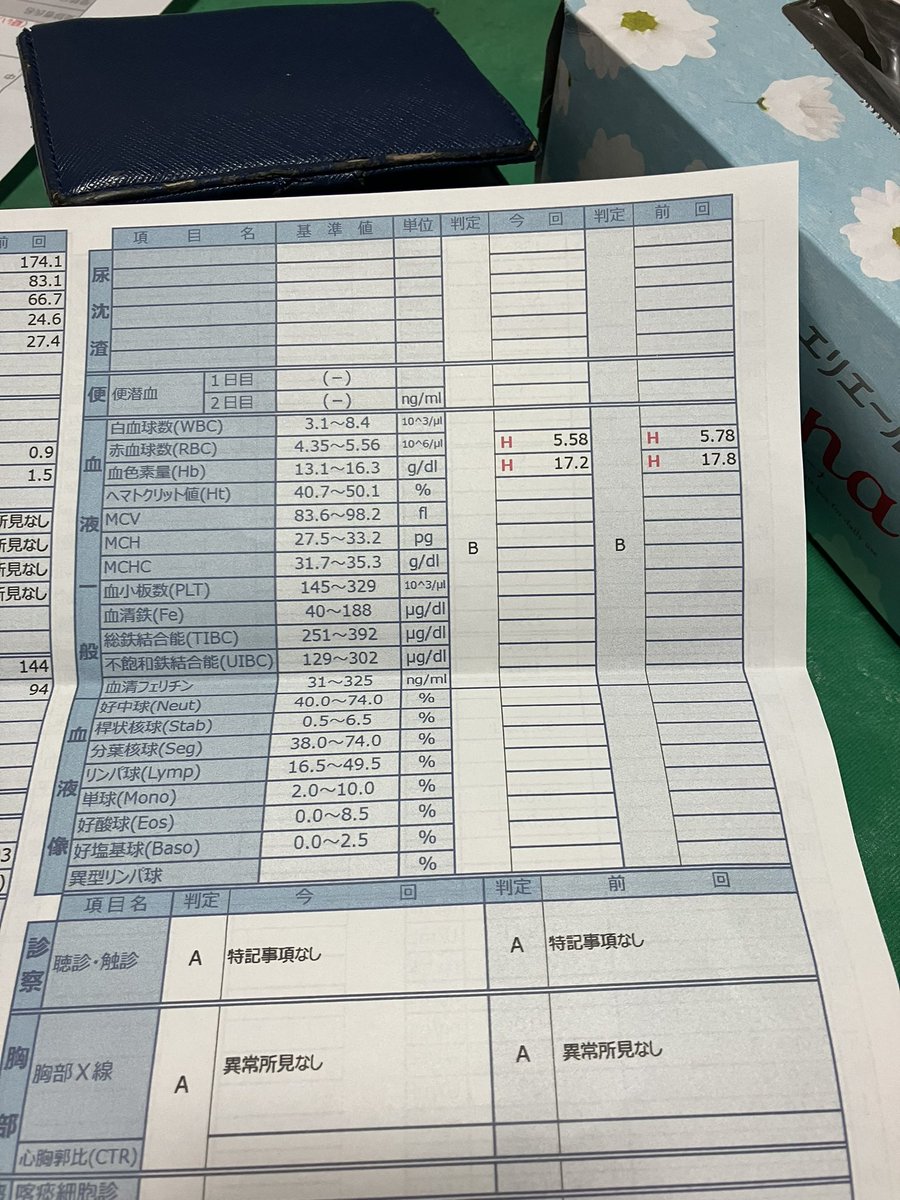 前 回
174.1
83.1
66.7
24.6
27.4
0.9
1.5
所見なし
所見なし
所見なし
所見なし
144
94
項 目 名 基 準 値 単位 判定 今 回 判定 前 回
尿沈渣
便 便潜血 1日目 (-)
2日目 (-) ng/ml
血液一般
白血球数(WBC) 3.1～8.4 10^3/μl
赤血球数(RBC) 4.35～5.56 10^6/μl H 5.58 H 5.78
血色素量(Hb) 13.1～16.3 g/dl H 17.2 H 17.8
ヘマトクリット値(Ht) 40.7～50.1 %
MCV 83.6～98.2 fl
MCH 27.5～33.2 pg B B
MCHC 31.7～35.3 g/dl
血小板数(PLT) 145～329 10^3/μl
血清鉄(Fe) 40～188 μg/dl
総鉄結合能(TIBC) 251～392 μg/dl
不飽和鉄結合能(UIBC) 129～302 μg/dl
血清フェリチン 31～325 ng/ml
血液像
好中球(Neut) 40.0～74.0 %
桿状核球(Stab) 0.5～6.5 %
分葉核球(Seg) 38.0～74.0 %
リンパ球(Lymp) 16.5～49.5 %
単球(Mono) 2.0～10.0 %
好酸球(Eos) 0.0～8.5 %
好塩基球(Baso) 0.0～2.5 %
異型リンパ球 %
項目名 判定 今 回 判定 前 回
診察 聴診・触診 A 特記事項なし A 特記事項なし
胸部 胸部X線 A 異常所見なし A 異常所見なし
心胸郭比(CTR)
喀痰細胞診
エリエール
na